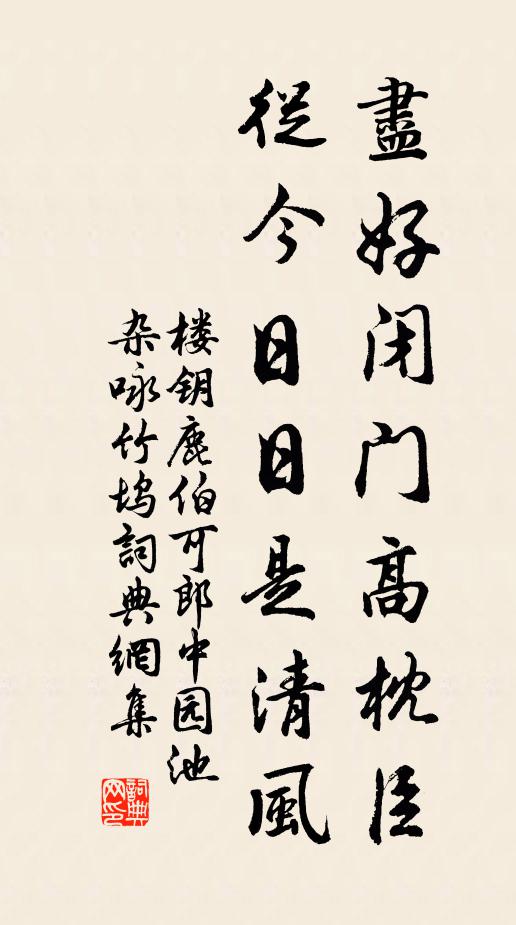 盡好闭门高枕臣
從今日日是清風
楼钥鹿伯可郎中园池
杂咏竹坞詞典網集
詞典网印